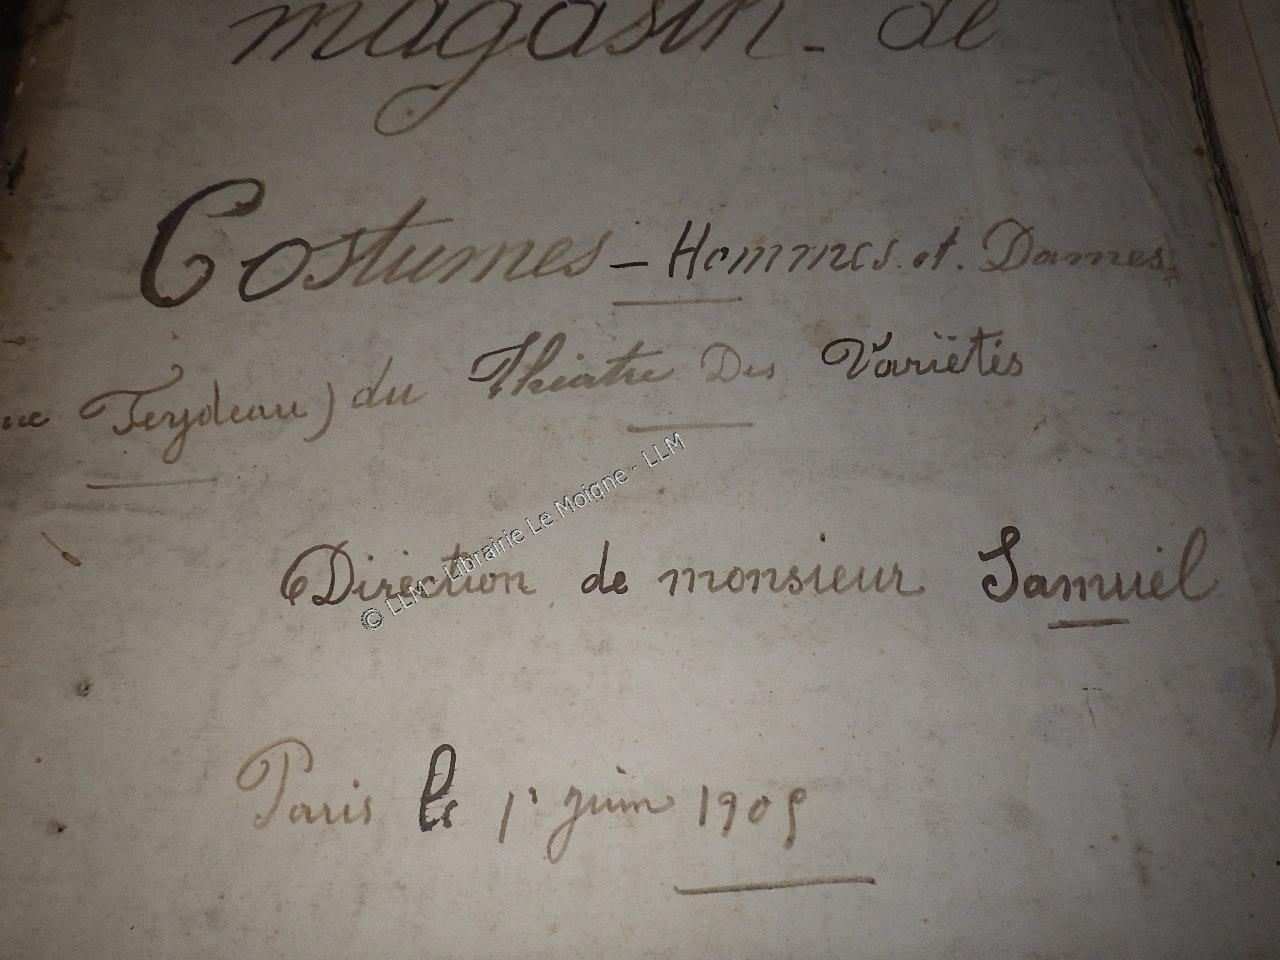 magasin - de
Costumes - Hommes et Dames
Feydeau) du Théâtre Des Variètés
© LLM - Librairie Le Moigne - LLM
Direction de monsieur Samuel
Paris le 1r juin 1909